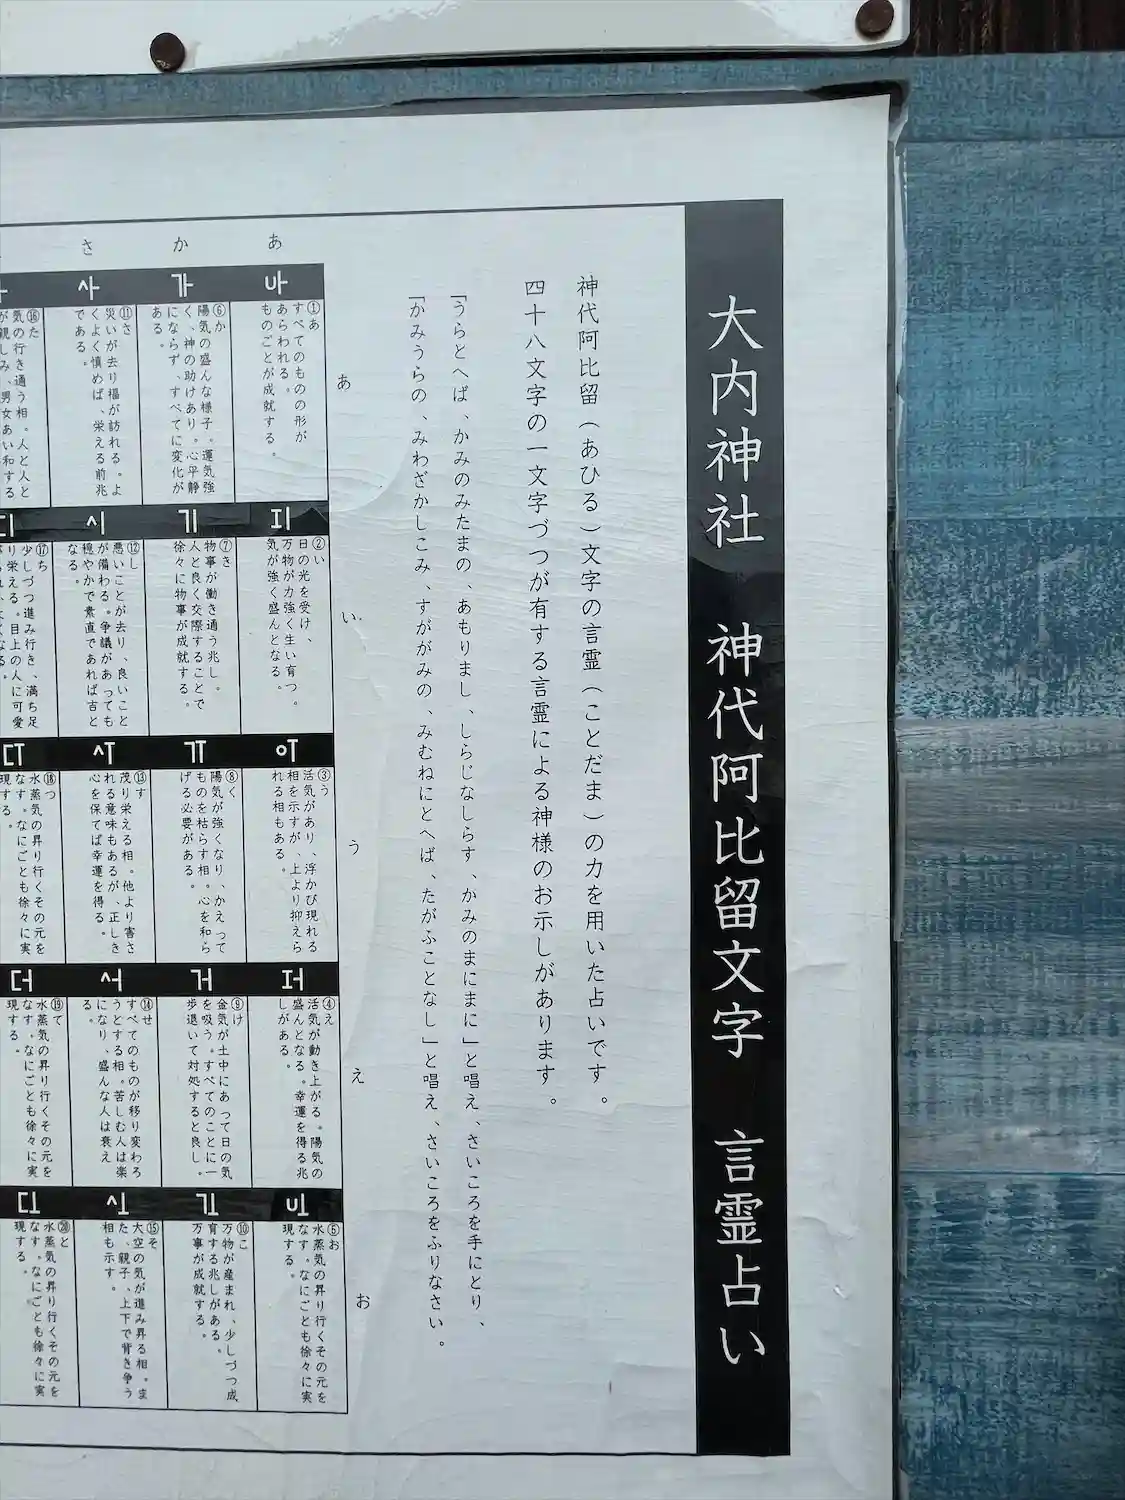 大内神社 神代阿比留文字 言霊占い
神代阿比留(あひる)文字の言霊(ことだま)の力を用いた占いです。
四十八文字の一文字づつが有する言霊による神様のお示しがあります。
「うらとへば、かみのみたまの、あもりまし、しらじなしらす、かみのまにまに」と唱え、さいころを手にとり、
「かみうらの、みわざかしこみ、すががみの、みむねにとへば、たがふことなし」と唱え、さいころをふりなさい。
あ
い
う
え
お
あ
①あ
すべてのものの形が
あらわれる。
ものごとが成就する。
②い
日の光を受け、
万物が力強く生い育つ。
気が強く盛んとなる。
③う
活気があり、浮かび現れる
相を示すが、上より抑えら
れる相もある。
④え
活気が動き上がる。陽気の
盛んとなる。幸運を得る兆
しがある。
⑤お
水蒸気の昇り行くその元を
なす。なにごとも徐々に実
現する。
か
가
⑥か
陽気の盛んな様子。運気強
く、神の助けあり。心平静
にならず、すべてに変化が
ある。
기
⑦き
物事が働き通う兆し。
人と良く交際することで
徐々に物事が成就する。
⑧く
陽気が強くなり、かえって
ものを枯らす相。心を和ら
げる必要がある。
거
⑨け
金気が土中にあって日の気
を吸う。すべてのことに一
歩退いて対処すると良し。
⑩こ
万物が産まれ、少しづつ成
育する兆しがある。
万事が成就する。
さ
사
⑪さ
災いが去り福が訪れる。よ
くよく慎めば、栄える前兆
である。
시
⑫し
悪いことが去り、良いこと
が備わる。争議があっても
穏やかで素直であれば吉と
なる。
⑬す
茂り栄える相。他より害さ
れる意味もあるが、正しき
心を保てば幸運を得る。
서
⑭せ
すべてのものが移り変わろ
うとする相。苦しむ人は楽
になり、盛んな人は衰え
る。
⑮そ
大空の気が進み昇る相。ま
た、親子、上下で背き争う
相も示す。
⑯た
気の行き通う相。人と人と
⑰ち
少しづつ進み行き、満ち足
り栄える。目上の人に可愛
⑱つ
水蒸気の昇り行くその元を
なす。なにごとも徐々に実
現する。
더
⑲て
水蒸気の昇り行くその元を
なす。なにごとも徐々に実
現する。
⑳と
水蒸気の昇り行くその元を
なす。なにごとも徐々に実
現する。